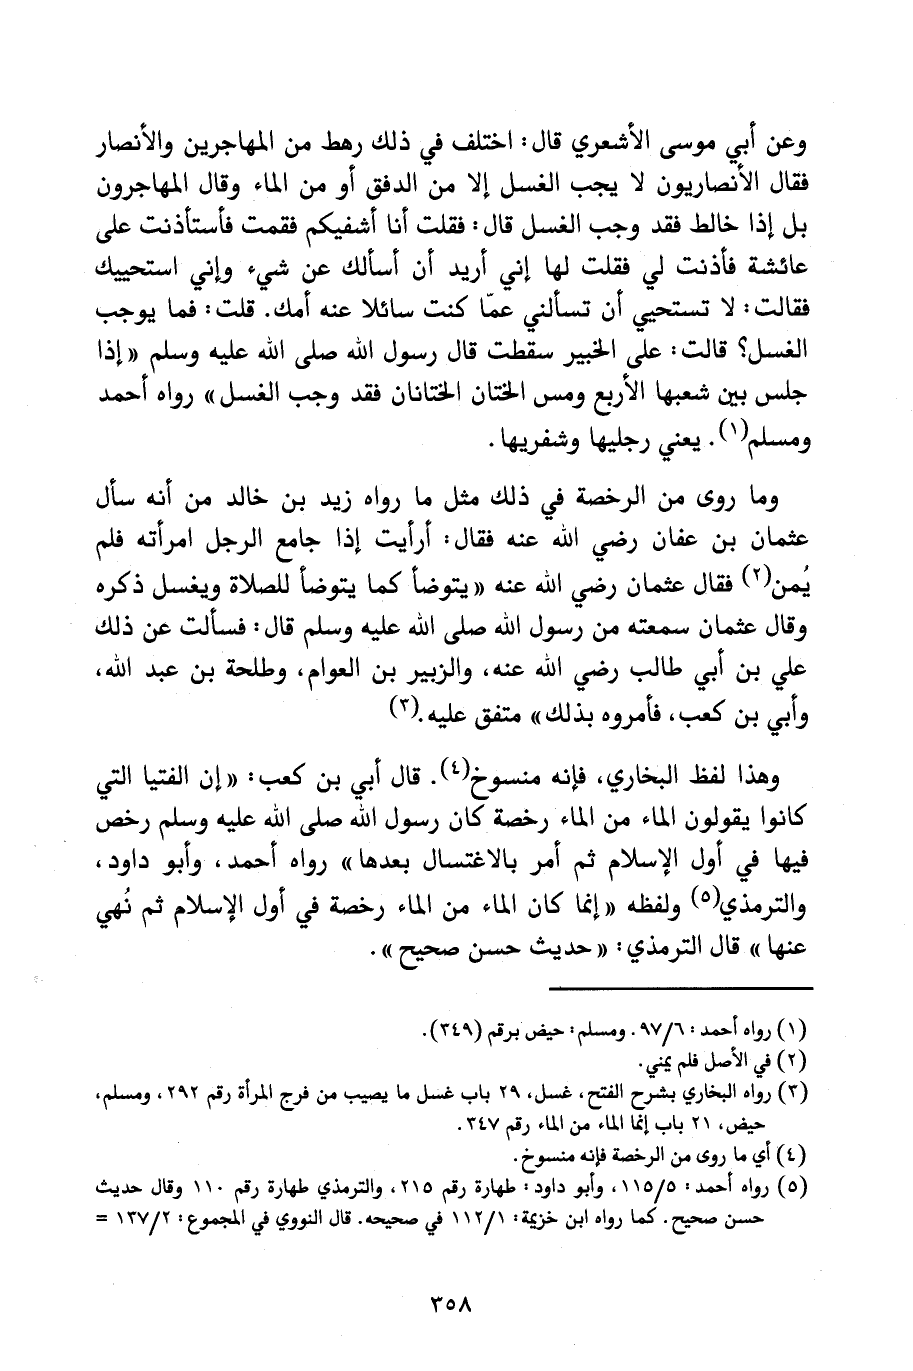 وعن أبي موسى الأشعري قال: اختلف في ذلك رهط من المهاجرين والأنصار
فقال الأنصاريون لا يجب الغسل إلا من الدفق أو من الماء وقال المهاجرون
بل إذا خالط فقد وجب الغسل قال: فقلت أنا أشفيكم فقمت فأستأذنت على
عائشة فأذنت لي فقلت لها إني أريد أن أسألك عن شيء وإني استحييك
فقالت: لا تستحيي أن تسألني عمّا كنت سائلا عنه أمك. قلت: فما يوجب
الغسل؟ قالت: على الخبير سقطت قال رسول الله صلى الله عليه وسلم «إذا
جلس بين شعبها الأربع ومس الختان الختانان فقد وجب الغسل» رواه أحمد
ومسلم(١). يعني رجليها وشفريها.
وما روى من الرخصة في ذلك مثل ما رواه زيد بن خالد من أنه سأل
عثمان بن عفان رضي الله عنه فقال: أرأيت إذا جامع الرجل امرأته فلم
يُمن(٢) فقال عثمان رضي الله عنه «يتوضأ كما يتوضأ للصلاة ويغسل ذكره
وقال عثمان سمعته من رسول الله صلى الله عليه وسلم قال: فسألت عن ذلك
علي بن أبي طالب رضي الله عنه، والزبير بن العوام، وطلحة بن عبد الله،
وأبي بن كعب، فأمروه بذلك» متفق عليه.(٣)
وهذا لفظ البخاري، فإنه منسوخ(٤). قال أبي بن كعب: «إن الفتيا التي
كانوا يقولون الماء من الماء رخصة كان رسول الله صلى الله عليه وسلم رخص
فيها في أول الإسلام ثم أمر بالاغتسال بعدها» رواه أحمد، وأبو داود،
والترمذي(٥) ولفظه «إنما كان الماء من الماء رخصة في أول الإسلام ثم نُهي
عنها» قال الترمذي: «حديث حسن صحيح».
(١) رواه أحمد: ٩٧/٦. ومسلم: حيض برقم (٣٤٩).
(٢) في الأصل فلم يمني.
(٣) رواه البخاري بشرح الفتح، غسل، ٢٩ باب غسل ما يصيب من فرج المرأة رقم ٢٩٢، ومسلم،
حيض، ٢١ باب إنما الماء من الماء رقم ٣٤٧.
(٤) أي ما روى من الرخصة فإنه منسوخ.
(٥) رواه أحمد: ١١٥/٥، وأبو داود: طهارة رقم ٢١٥، والترمذي طهارة رقم ١١٠ وقال حديث
حسن صحيح. كما رواه ابن خزيمة: ١١٢/١ في صحيحه. قال النووي في المجموع: ١٣٧/٢ =
٣٥٨